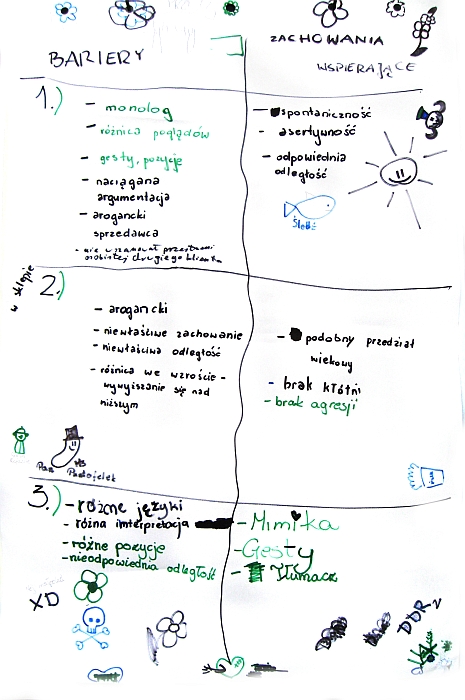 BARIERY
ZACHOWANIA
WSPIERAJĄCE
1.)
- monolog
- różnica poglądów
- gesty, pozycje
- naciągana
argumentacja
- arogancki
sprzedawca
- nie uszanował przestrzeni
osobistej drugiego klienta
- spontaniczność
- asertywność
- odpowiednia
odległość
śledź
w sklepie
2.)
- arogancki
- niewłaściwe zachowanie
- niewłaściwa odległość
- różnica we wzroście -
wywyższanie się nad
niższym
- podobny przedział
wiekowy
- brak kłótni
- brak agresji
Pan
3.)
- różne języki
- różna interpretacja
- różne pozycje
- nieodpowiednia odległość
- Mimika
- Gesty
- Tłumacz
XD